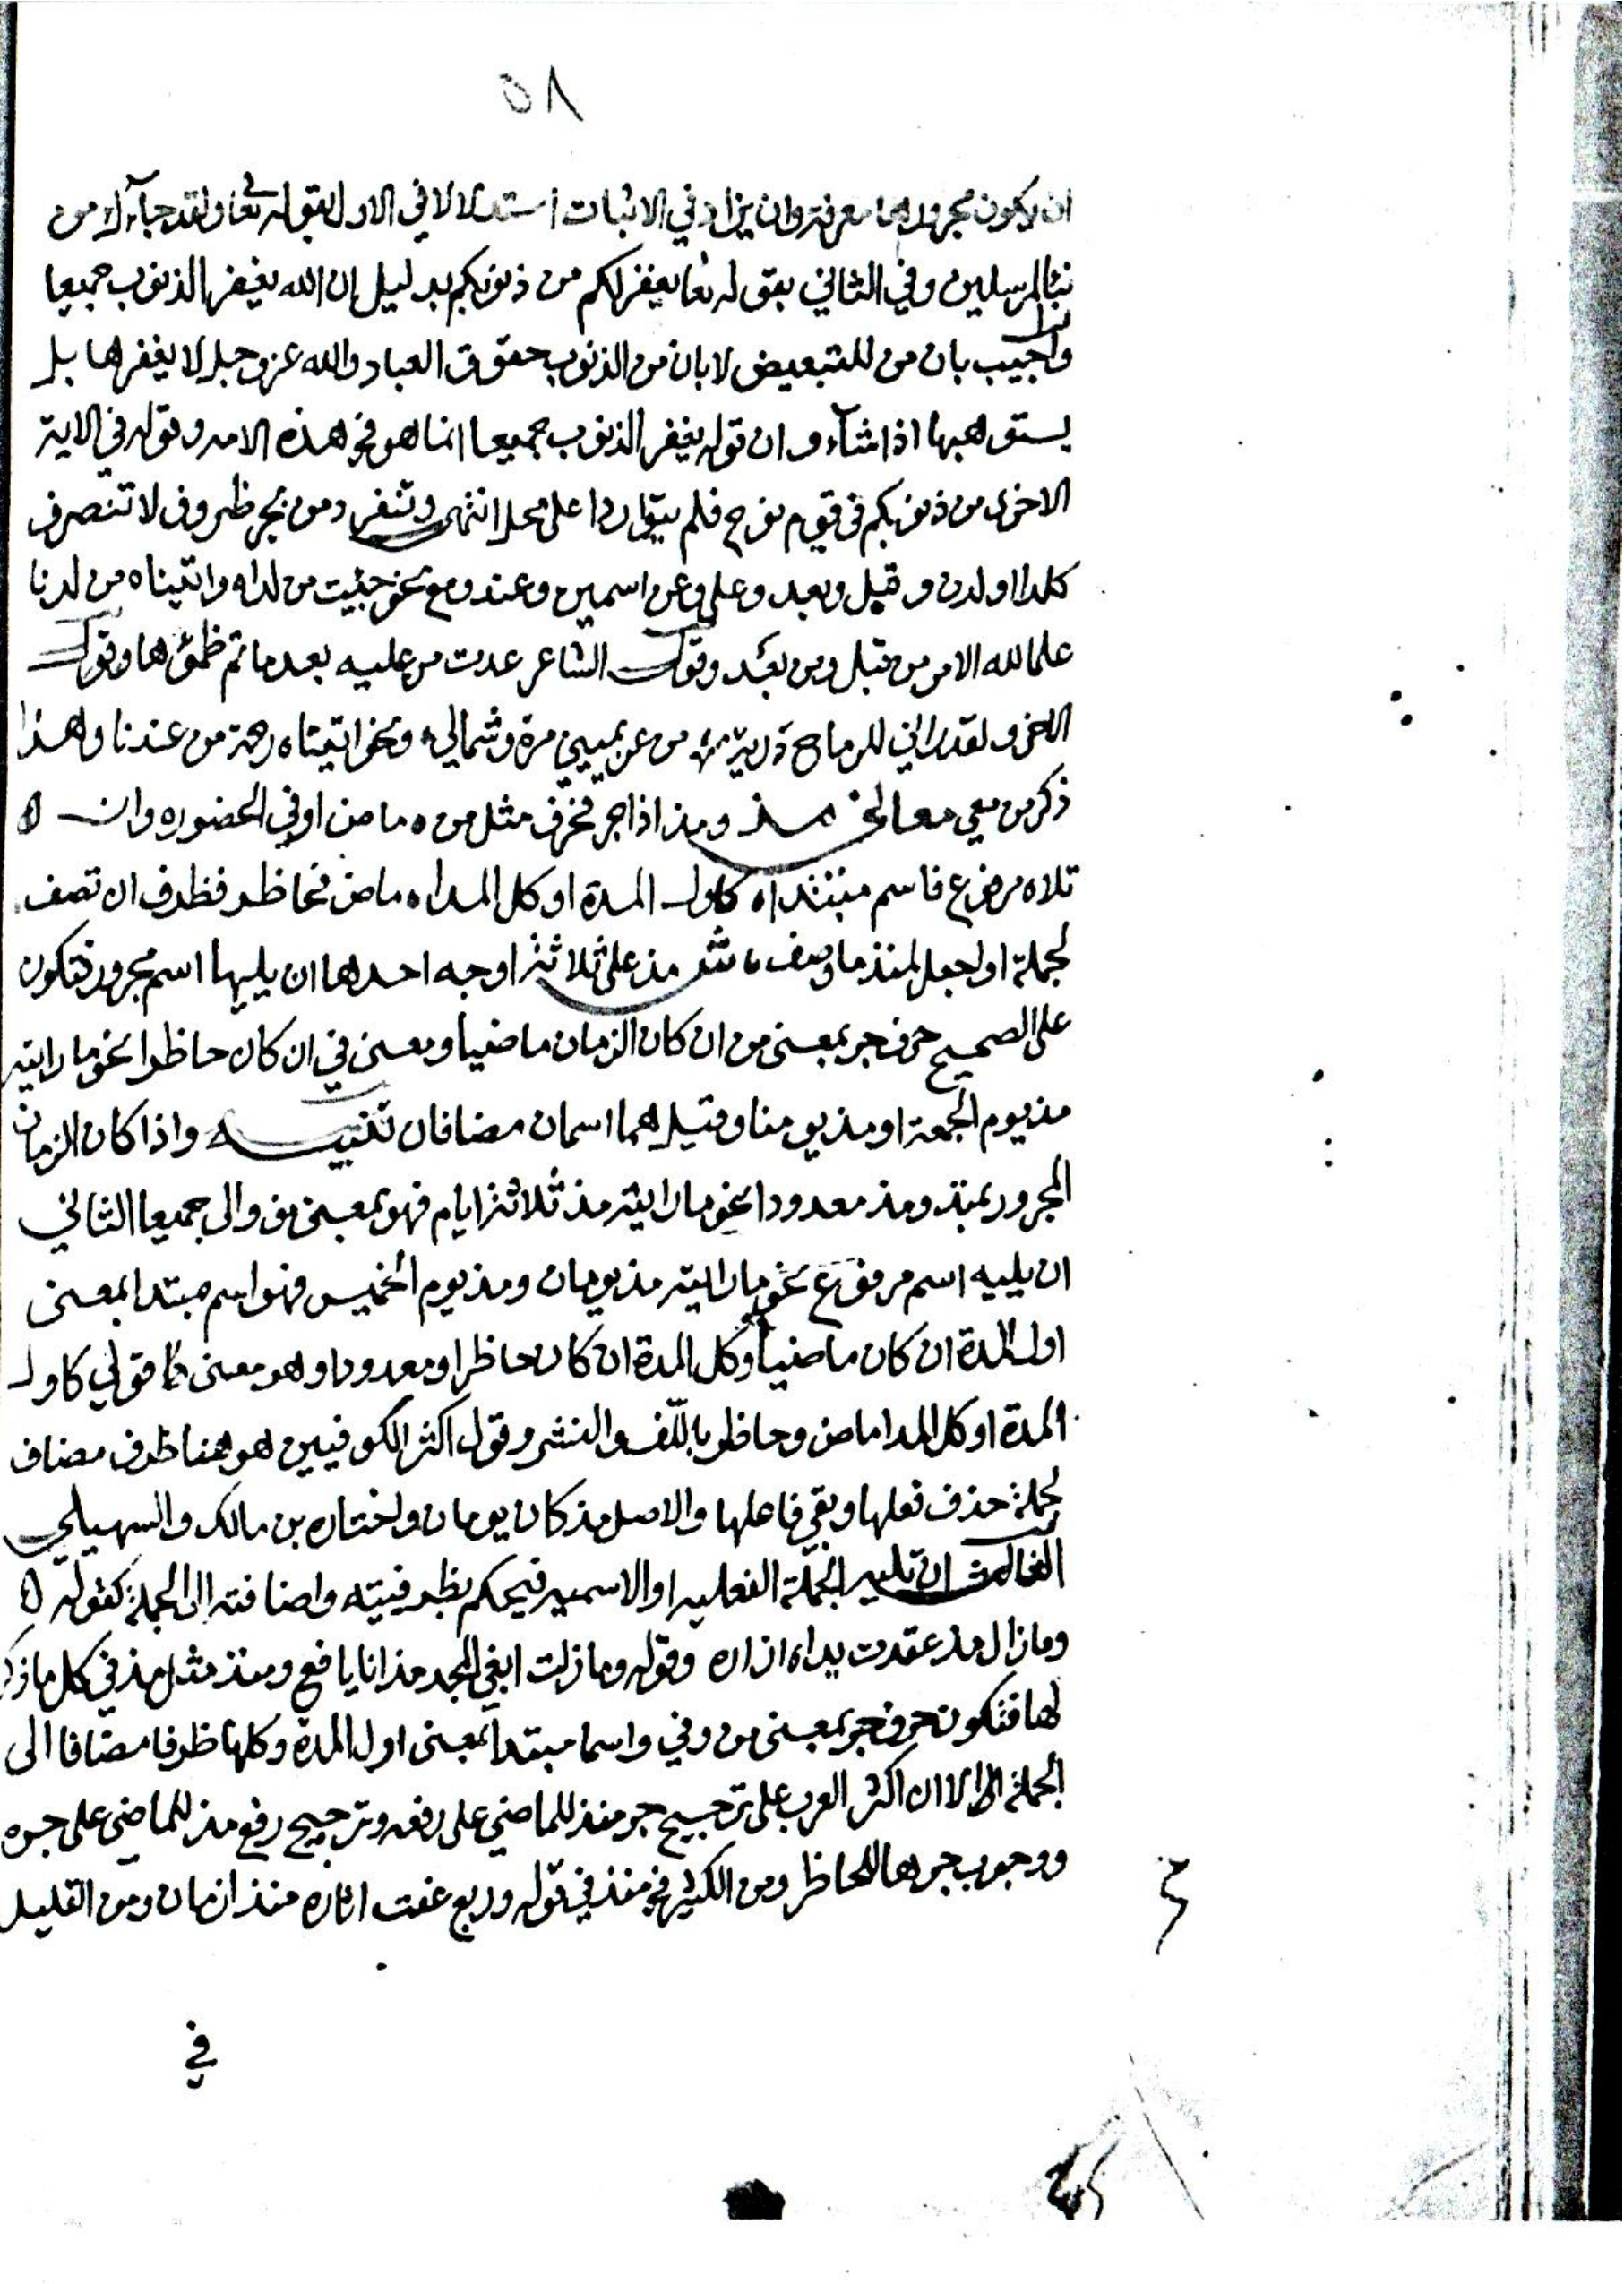 ٥٨
ان يكون مجرورها معرفة وان يزاد في الاثبات استدلالا في الاول بقوله تعا ولقد جآءك من
نبا المرسلين وفي الثاني بقوله تعا يغفر لكم من ذنوبكم بدليل ان الله يغفر الذنوب جميعا
واجيب بان من للتبعيض لا بان من الذنوب حقوق العباد والله عز وجل لا يغفرها بل
يستوهبها اذا شآء وان قوله يغفر الذنوب جميعا انما هو في هذه الامه وقوله في الاية
الاخرى من ذنوبكم في قوم نوح فلم يتواردا على محل انتهى وتنفرد من بجر ظروف لا تتصرف
كلدا ولدن وقبل وبعد وعلى وعن اسمين وعند ومع نحو جئيت من لداه واتيناه من لدنا
علما لله الامر من قبل ومن بعد وقول الشاعر عدت من عليه بعد ما تم ظمؤها وقول
الاخر ولقد اراني للرماح دريئة من عن يميني مرة وشمالي ونحو اتيناه رحمة من عندنا وهذا
ذكر من معي مذ ومنذ اذا جر فحرف مثل من ماض او في الحضور وان
تلاه مرفوع فاسم مبتداه كاول المدة او كل المداه ماض فحاظر فظرف ان تصف
لجملة او لجعل لمنذ ما وصف مذ على ثلاثة اوجه احدها ان يليها اسم مجرور فتكون
على الصحيح حرف جر بمعنى من ان كان الزمان ماضيا ومعنى في ان كان حاظرا نحو ما رايته
مذ يوم الجمعة او مذ يومنا وقيل هما اسمان مضافان تنبيه واذا كان الزمان
المجرور بمنذ ومذ معدودا نحو ما رايته مذ ثلاثة ايام فهو بمعنى من والى جميعا الثاني
ان يليه اسم مرفوع نحو ما رايته مذ يومان ومذ يوم الخميس فهو اسم مبتدا بمعنى
اول المدة ان كان ماضيا وكل المدة ان كان حاظرا ومعدودا وهو معنى قولي كاول
المدة او كل المدا ماض وحاظر باللف والنشر وقول اكثر الكوفيين هو هنا ظرف مضاف
لجملة حذف فعلها وبقي فاعلها والاصل مذ كان يومان واختاره بن مالك والسهيلي
الثالث ان تليه الجملة الفعليه او الاسميه فيحكم بظرفيته واضافته الى الجملة كقوله
وما زال مذ عقدت يداه ازاره وقوله وما زلت ابغي المجد مذ انا يافع ومنذ مثل مذ في كل ما ذكر
لها فتكون حرف جر بمعنى من وفي واسما مبتدا بمعنى اول المدة وكلها وظرفا مضافا الى
الجملة الا ان اكثر العرب على ترجيح جر منذ للماضي على رفعه وترجيح رفع مذ للماضي على جره
ووجوب جرهما للحاظر ومن الكثير في منذ في قوله وربع عفت اثاره منذ ازمان ومن القليل
في